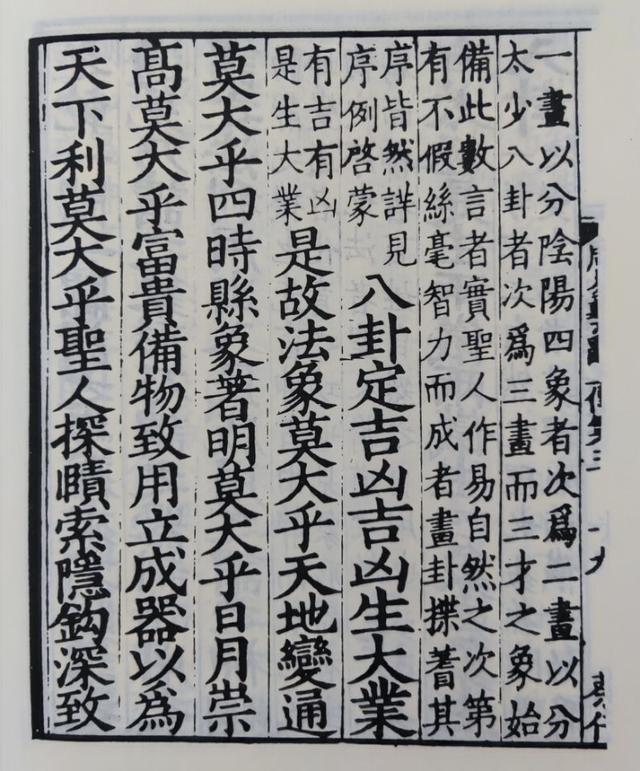 一畫以分陰陽四象者次爲二畫以分
太少八卦者次爲三畫而三才之象始
備此數言者實聖人作易自然之次第
有不假絲毫智力而成者畫卦揲蓍其
序皆然詳見
序例啓蒙
八卦定吉凶吉凶生大業
有吉有凶
是生大業
是故法象莫大乎天地變通
莫大乎四時縣象著明莫大乎日月崇
髙莫大乎富貴備物致用立成器以為
天下利莫大乎聖人探賾索隱鈎深致